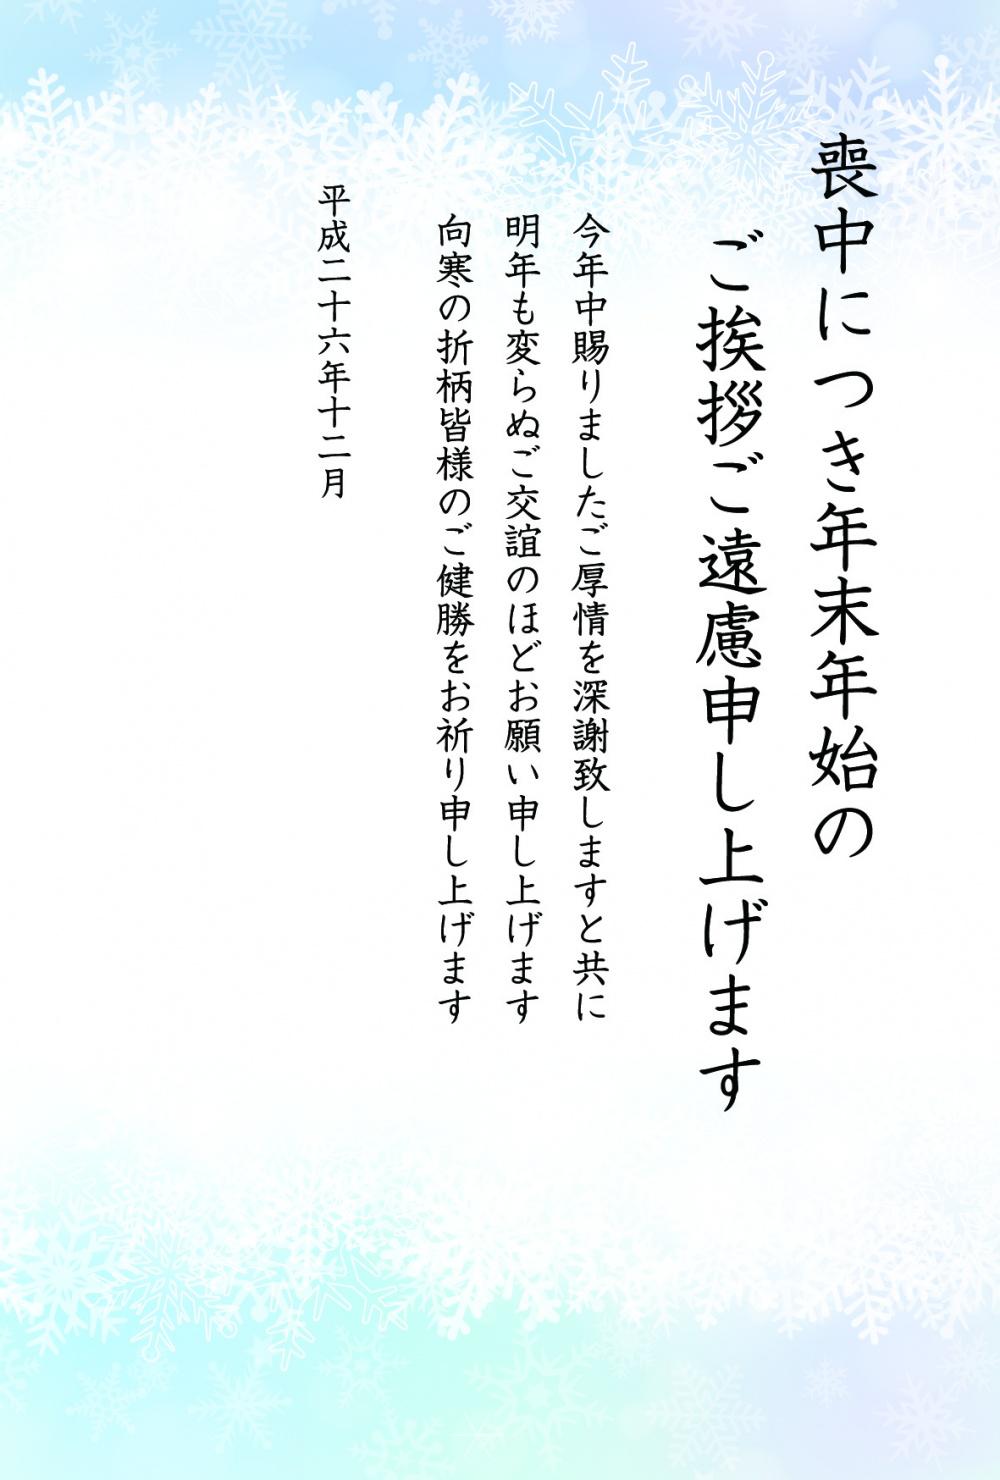 喪中につき年末年始の
ご挨拶ご遠慮申し上げます
今年中賜りましたご厚情を深謝致しますと共に
明年も変らぬご交誼のほどお願い申し上げます
向寒の折柄皆様のご健勝をお祈り申し上げます
平成二十六年十二月